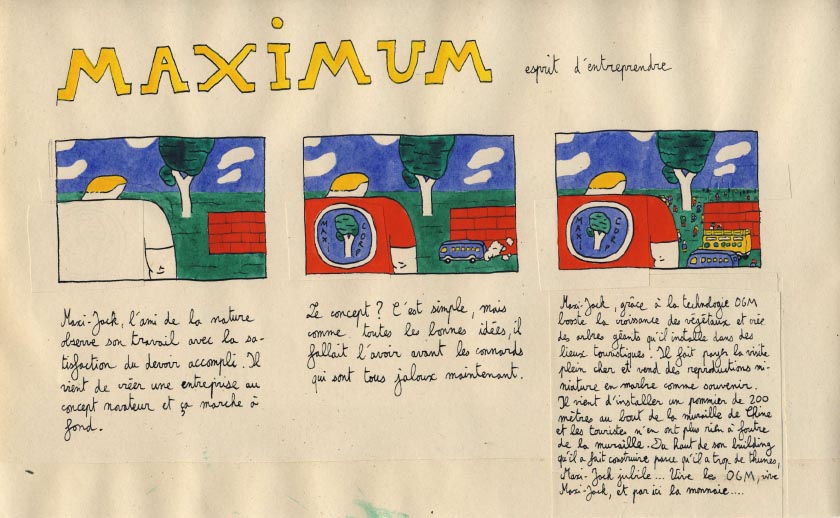 MAXIMUM
esprit d'entreprendre
MAXI CORP
MAXI CORP
Maxi-Jack, l'ami de la nature
observe son travail avec la sa-
tisfaction du devoir accompli. Il
vient de créer une entreprise au
concept novateur et ça marche à
fond.
Le concept? C'est simple, mais
comme toutes les bonnes idées, il
fallait l'avoir avant les connards
qui sont tous jaloux maintenant.
Maxi-Jack, grâce à la technologie OGM
booste la croissance des végétaux et crée
des arbres géants qu'il installe dans des
lieux touristiques. Il fait payer la visite
plein cher et vend des reproductions mi-
niature en marbre comme souvenir.
Il vient d'installer un pommier de 200
mètres au bout de la muraille de Chine
et les touristes n'en ont plus rien à foutre
de la muraille. Du haut de son building
qu'il a fait construire parce qu'il a trop de thunes,
Maxi-Jack jubile... Vive les OGM, vive
Maxi-Jack, et par ici la monnaie....